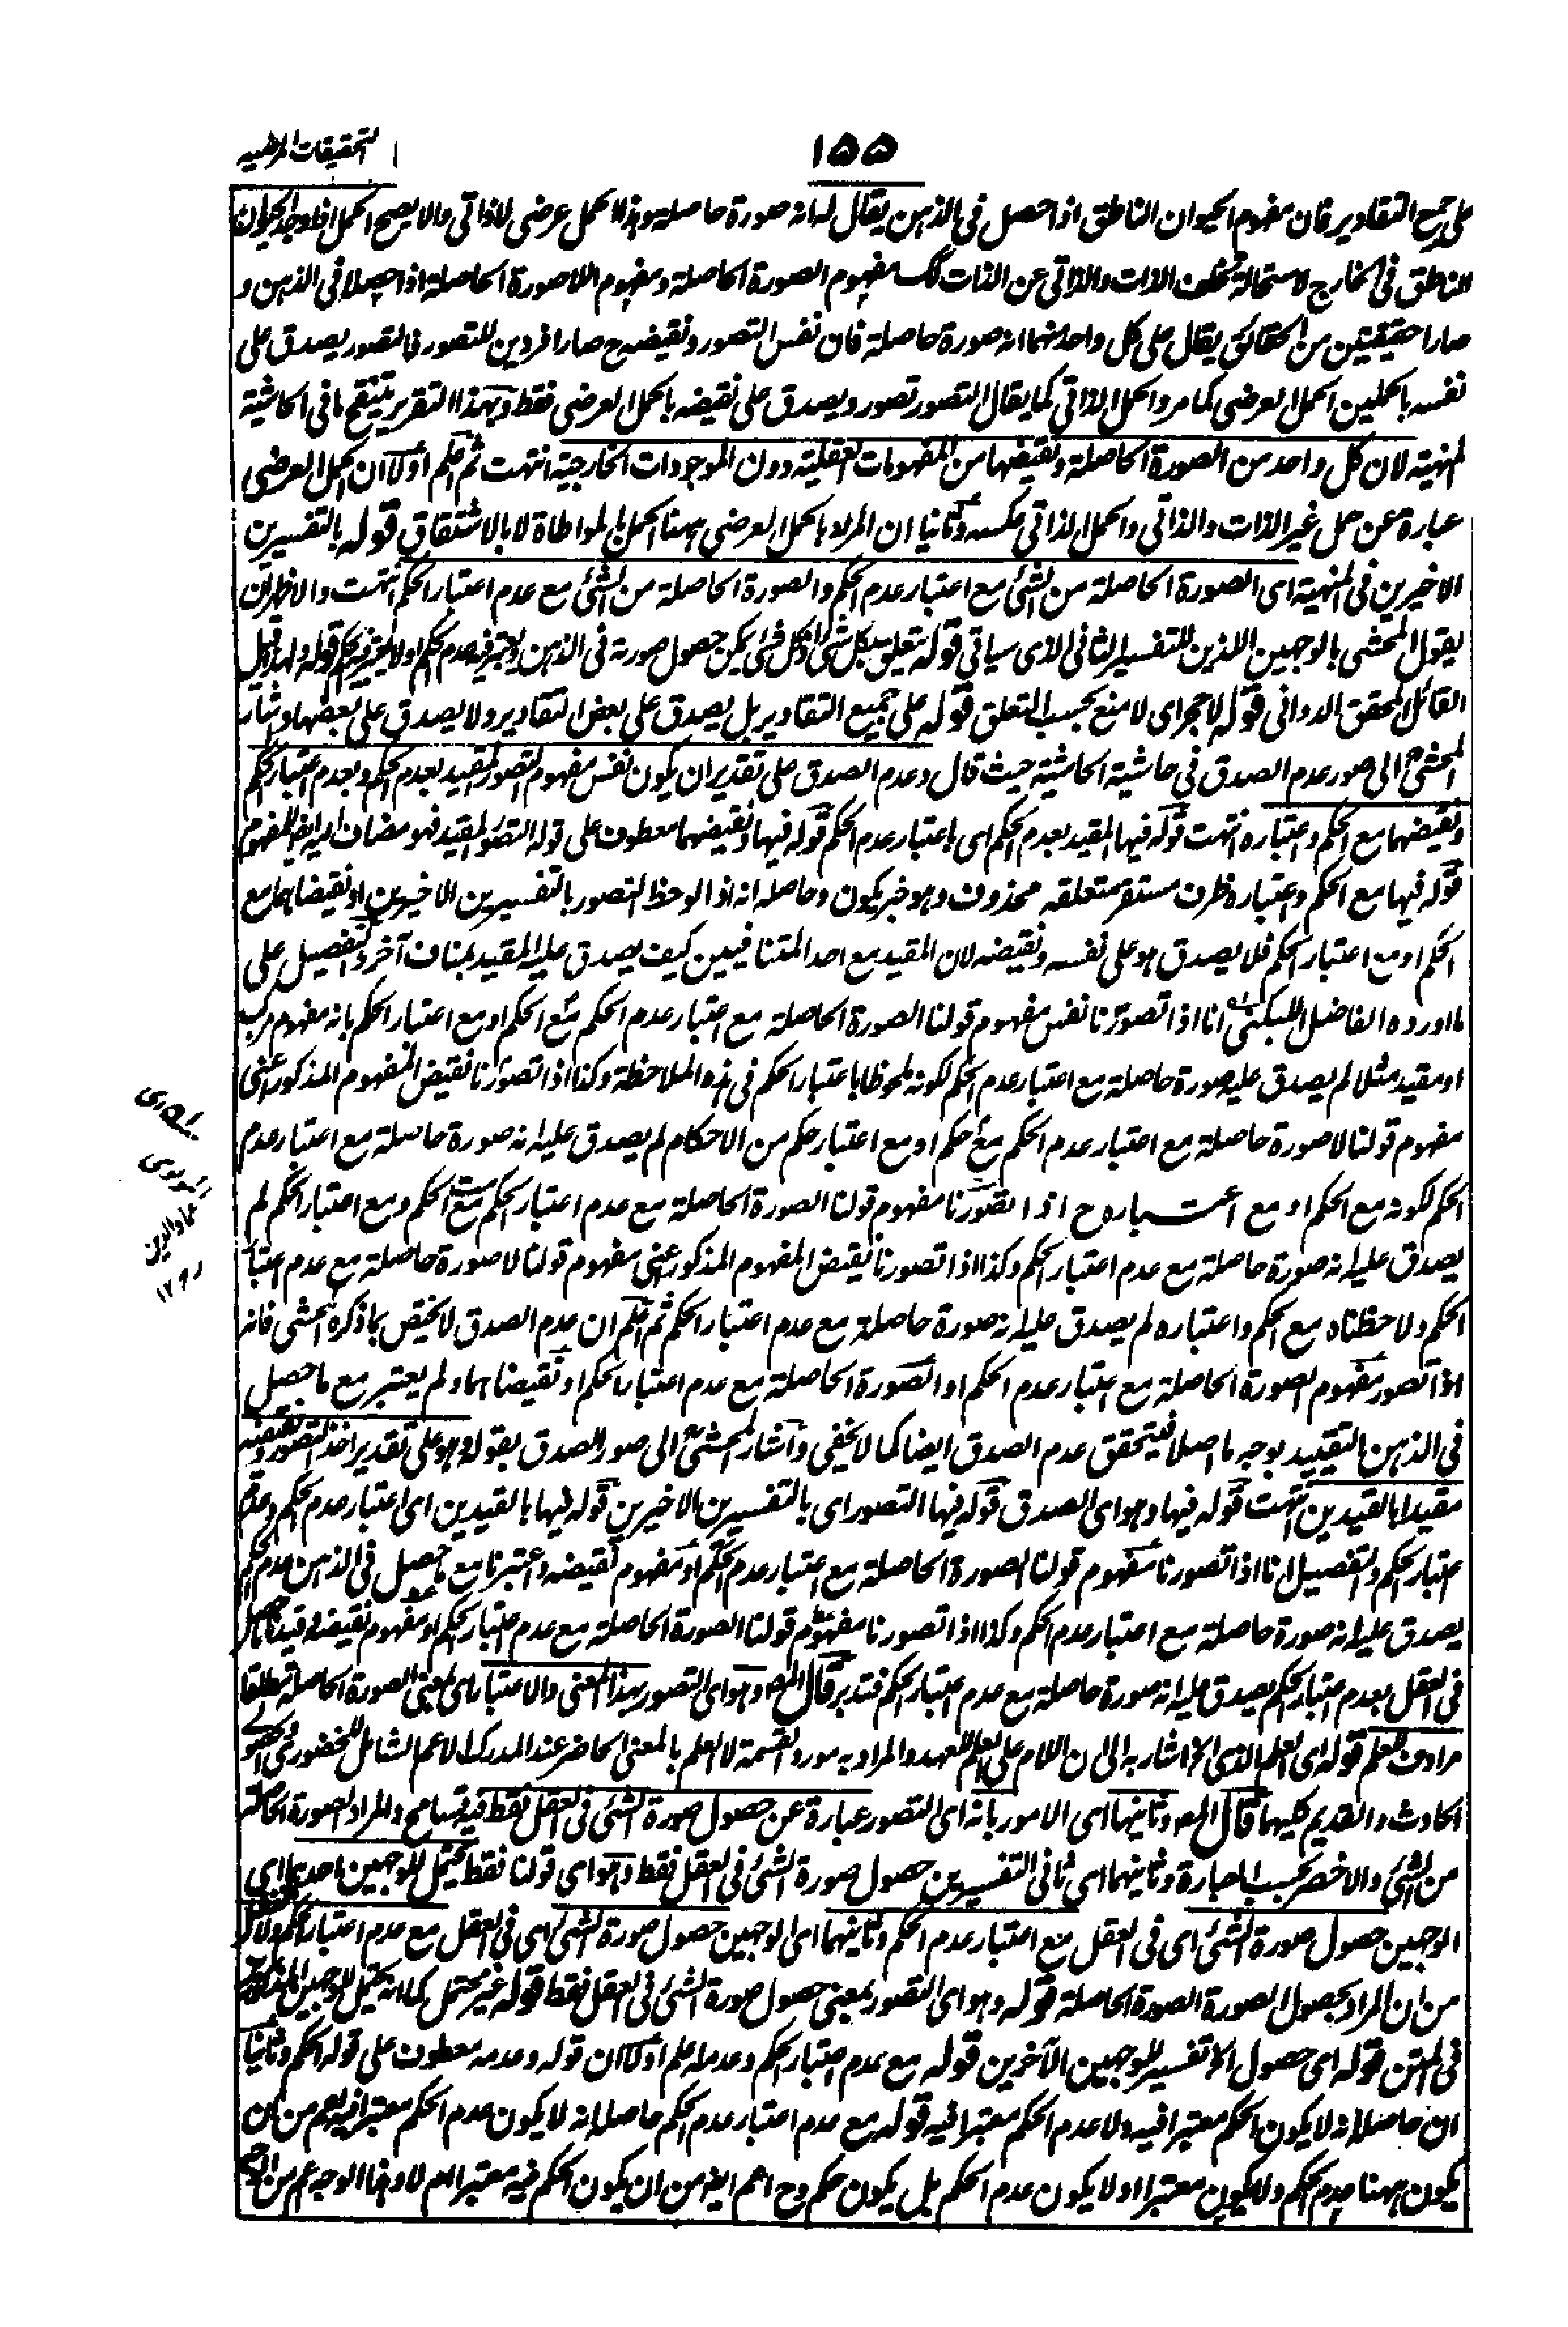 ١٥٥
التحقيقات المرضيه
على جميع التقادير فان مفهوم الحيوان الناطق اذا حصل فى الذهن يقال له انه صورة حاصلة وهذا الحمل عرضى لا ذاتى والا لا يصح الحمل اذا وجد الحيوان
الناطق فى الخارج لاستحالة تخلف الذات والذاتى عن الذات كك مفهوم الصورة الحاصلة ومفهوم اللاصورة الحاصلة اذا حصلا فى الذهن و
صارا حقيقتين من الحقائق يقال على كل واحد منهما انه صورة حاصلة فان نفس التصور ونقيضه ح صارا فردين للتصور فالتصور يصدق على
نفسه بالحملين الحمل العرضى كما مر والحمل الذاتى كما يقال التصور تصور ويصدق على نقيضه بالحمل العرضى فقط وبهذا التقرير يتنقح ما فى الحاشية
المنهية لان كل واحد من الصورة الحاصلة ونقيضها من المفهومات العقلية دون الموجودات الخارجية انتهت ثم اعلم اولا ان الحمل العرضى
عبارة عن حمل غير الذات والذاتى والحمل الذاتى عكسه وثانيا ان المراد بالحمل العرضى ههنا الحمل بالمواطاة لا بالاشتقاق قوله بالتفسيرين
الاخيرين فى المنهية اى الصورة الحاصلة من الشئ مع اعتبار عدم الحكم والصورة الحاصلة من الشئ مع عدم اعتبار الحكم انتهت والاظهر ان
يقول المحشى بالوجهين اللذين للتفسير الثانى الذى سياتى قوله يتعلق بكل شئ اذ كل شئ يمكن حصول صورته فى الذهن ويعتبر فيه عدم الحكم او لا يعتبر فيه الحكم قوله ولهذا قيل
القائل المحقق الدوانى قوله لا حجر اى لا منع بحسب التعلق قوله على جميع التقادير بل يصدق على بعض التقادير ولا يصدق على بعضها واشار
المحشى الى صور عدم الصدق فى حاشية الحاشية حيث قال وعدم الصدق على تقدير ان يكون نفس مفهوم التصور المقيد بعدم الحكم وبعدم اعتبار الحكم
ونقيضهما مع الحكم واعتباره انتهت قوله فيها المقيد بعدم الحكم اى باعتبار عدم الحكم قوله فيها ونقيضهما معطوف على قوله التصور المقيد فهو مضاف اليه ايضا للمفهوم
قوله فيها مع الحكم واعتباره ظرف مستقر متعلقه محذوف وهو خبر يكون وحاصله انه اذا لوحظ التصور بالتفسيرين الاخيرين او نقيضاهما مع
الحكم او مع اعتبار الحكم فلا يصدق هو على نفسه ونقيضه لان المقيد مع احد المتنافيين كيف يصدق عليه المقيد بمناف آخر والتفصيل على
ما اورده الفاضل اللبكنى انا اذا تصورنا نفس مفهوم قولنا الصورة الحاصلة مع اعتبار عدم الحكم مع الحكم او مع اعتبار الحكم بانه مفهوم مركب
او مقيد مثلا لم يصدق عليه صورة حاصلة مع اعتبار عدم الحكم لكونه ملحوظا باعتبار الحكم فى هذه الملاحظة وكذا اذا تصورنا نقيض المفهوم المذكور اعنى
مفهوم قولنا لا صورة حاصلة مع اعتبار عدم الحكم مع حكم او مع اعتبار حكم من الاحكام لم يصدق عليه انه صورة حاصلة مع اعتبار عدم
الحكم لكونه مع الحكم او مع اعتباره ح اذا تصورنا مفهوم قولنا الصورة الحاصلة مع عدم اعتبار الحكم مع الحكم ومع اعتبار الحكم لم
يصدق عليه انه صورة حاصلة مع عدم اعتبار الحكم وكذا اذا تصورنا نقيض المفهوم المذكور اعنى مفهوم قولنا لا صورة حاصلة مع عدم اعتبار
الحكم ولاحظناه مع الحكم واعتباره لم يصدق عليه انه صورة حاصلة مع عدم اعتبار الحكم ثم اعلم ان عدم الصدق لا يختص بما ذكره المحشى فانه
اذا تصور مفهوم الصورة الحاصلة مع اعتبار عدم الحكم او الصورة الحاصلة مع عدم اعتبار الحكم او نقيضاهما ولم يعتبر مع ما حصل
فى الذهن التقييد بوجه ما اصلا فيتحقق عدم الصدق ايضا كما لا يخفى واشار المحشى الى صور الصدق بقوله وهو على تقدير اخذ التصور ونقيضه
مقيدا بالقيدين انتهت قوله فيها وهو اى الصدق قوله فيها التصور اى بالتفسيرين الاخيرين قوله فيها بالقيدين اى اعتبار عدم الحكم وعدم
اعتبار الحكم والتفصيل انا اذا تصورنا مفهوم قولنا الصورة الحاصلة مع اعتبار عدم الحكم او مفهوم نقيضه واعتبرنا مع ما حصل فى الذهن عدم الحكم
يصدق عليه انه صورة حاصلة مع اعتبار عدم الحكم وكذا اذا تصورنا مفهوم قولنا الصورة الحاصلة مع عدم اعتبار الحكم او مفهوم نقيضه وقيدنا ما حصل
فى العقل بعدم اعتبار الحكم يصدق عليه انه صورة حاصلة مع عدم اعتبار الحكم فتدبر قال المص وهو اى التصور بهذا المعنى والاعتبار اى لمعنى الصورة الحاصلة مطلقا
مرادف للعلم قوله اى العلم الذى الخ اشار به الى ان اللام على العلم للعهد والمراد به مورد القسمة لا العلم بالمعنى الحاضر عند المدرك الاعم الشامل للحضورى والحصولى
الحادث والقديم كليهما قال المص وثانيهما اى الامور بانه اى التصور عبارة عن حصول صورة الشئ فى العقل فقط فيه تسامح والمراد الصورة الحاصلة
من الشئ والاخصر بحسب العبارة وثانيهما اى ثانى التفسيرين حصول صورة الشئ فى العقل فقط وهو اى قولنا فقط يحتمل للوجهين احدهما اى
الوجهين حصول صورة الشئ اى فى العقل مع اعتبار عدم الحكم وثانيهما اى الوجهين حصول صورة الشئ اى فى العقل مع عدم اعتبار الحكم
من ان المراد بحصول الصورة الصورة الحاصلة قوله وهو اى التصور بمعنى حصول صورة الشئ فى العقل فقط قوله غير محتمل كما انه يحتمل للوجهين
فى المتن قوله اى حصول الخ تفسير للوجهين الآخرين قوله مع عدم اعتبار الحكم وعدمه اعلم اولا ان قوله وعدمه معطوف على قوله الحكم وثانيا
ان حاصله انه لا يكون الحكم معتبرا فيه ولا عدم الحكم معتبرا فيه قوله مع عدم اعتبار عدم الحكم حاصله انه لا يكون عدم الحكم معتبرا فيه اعم من ان
يكون ههنا عدم الحكم ولا يكون معتبرا او لا يكون عدم الحكم بل يكون حكم وح اعم ايضا من ان يكون الحكم فيه معتبرا ام لا وهذا الوجه اعم من
عماد الدين